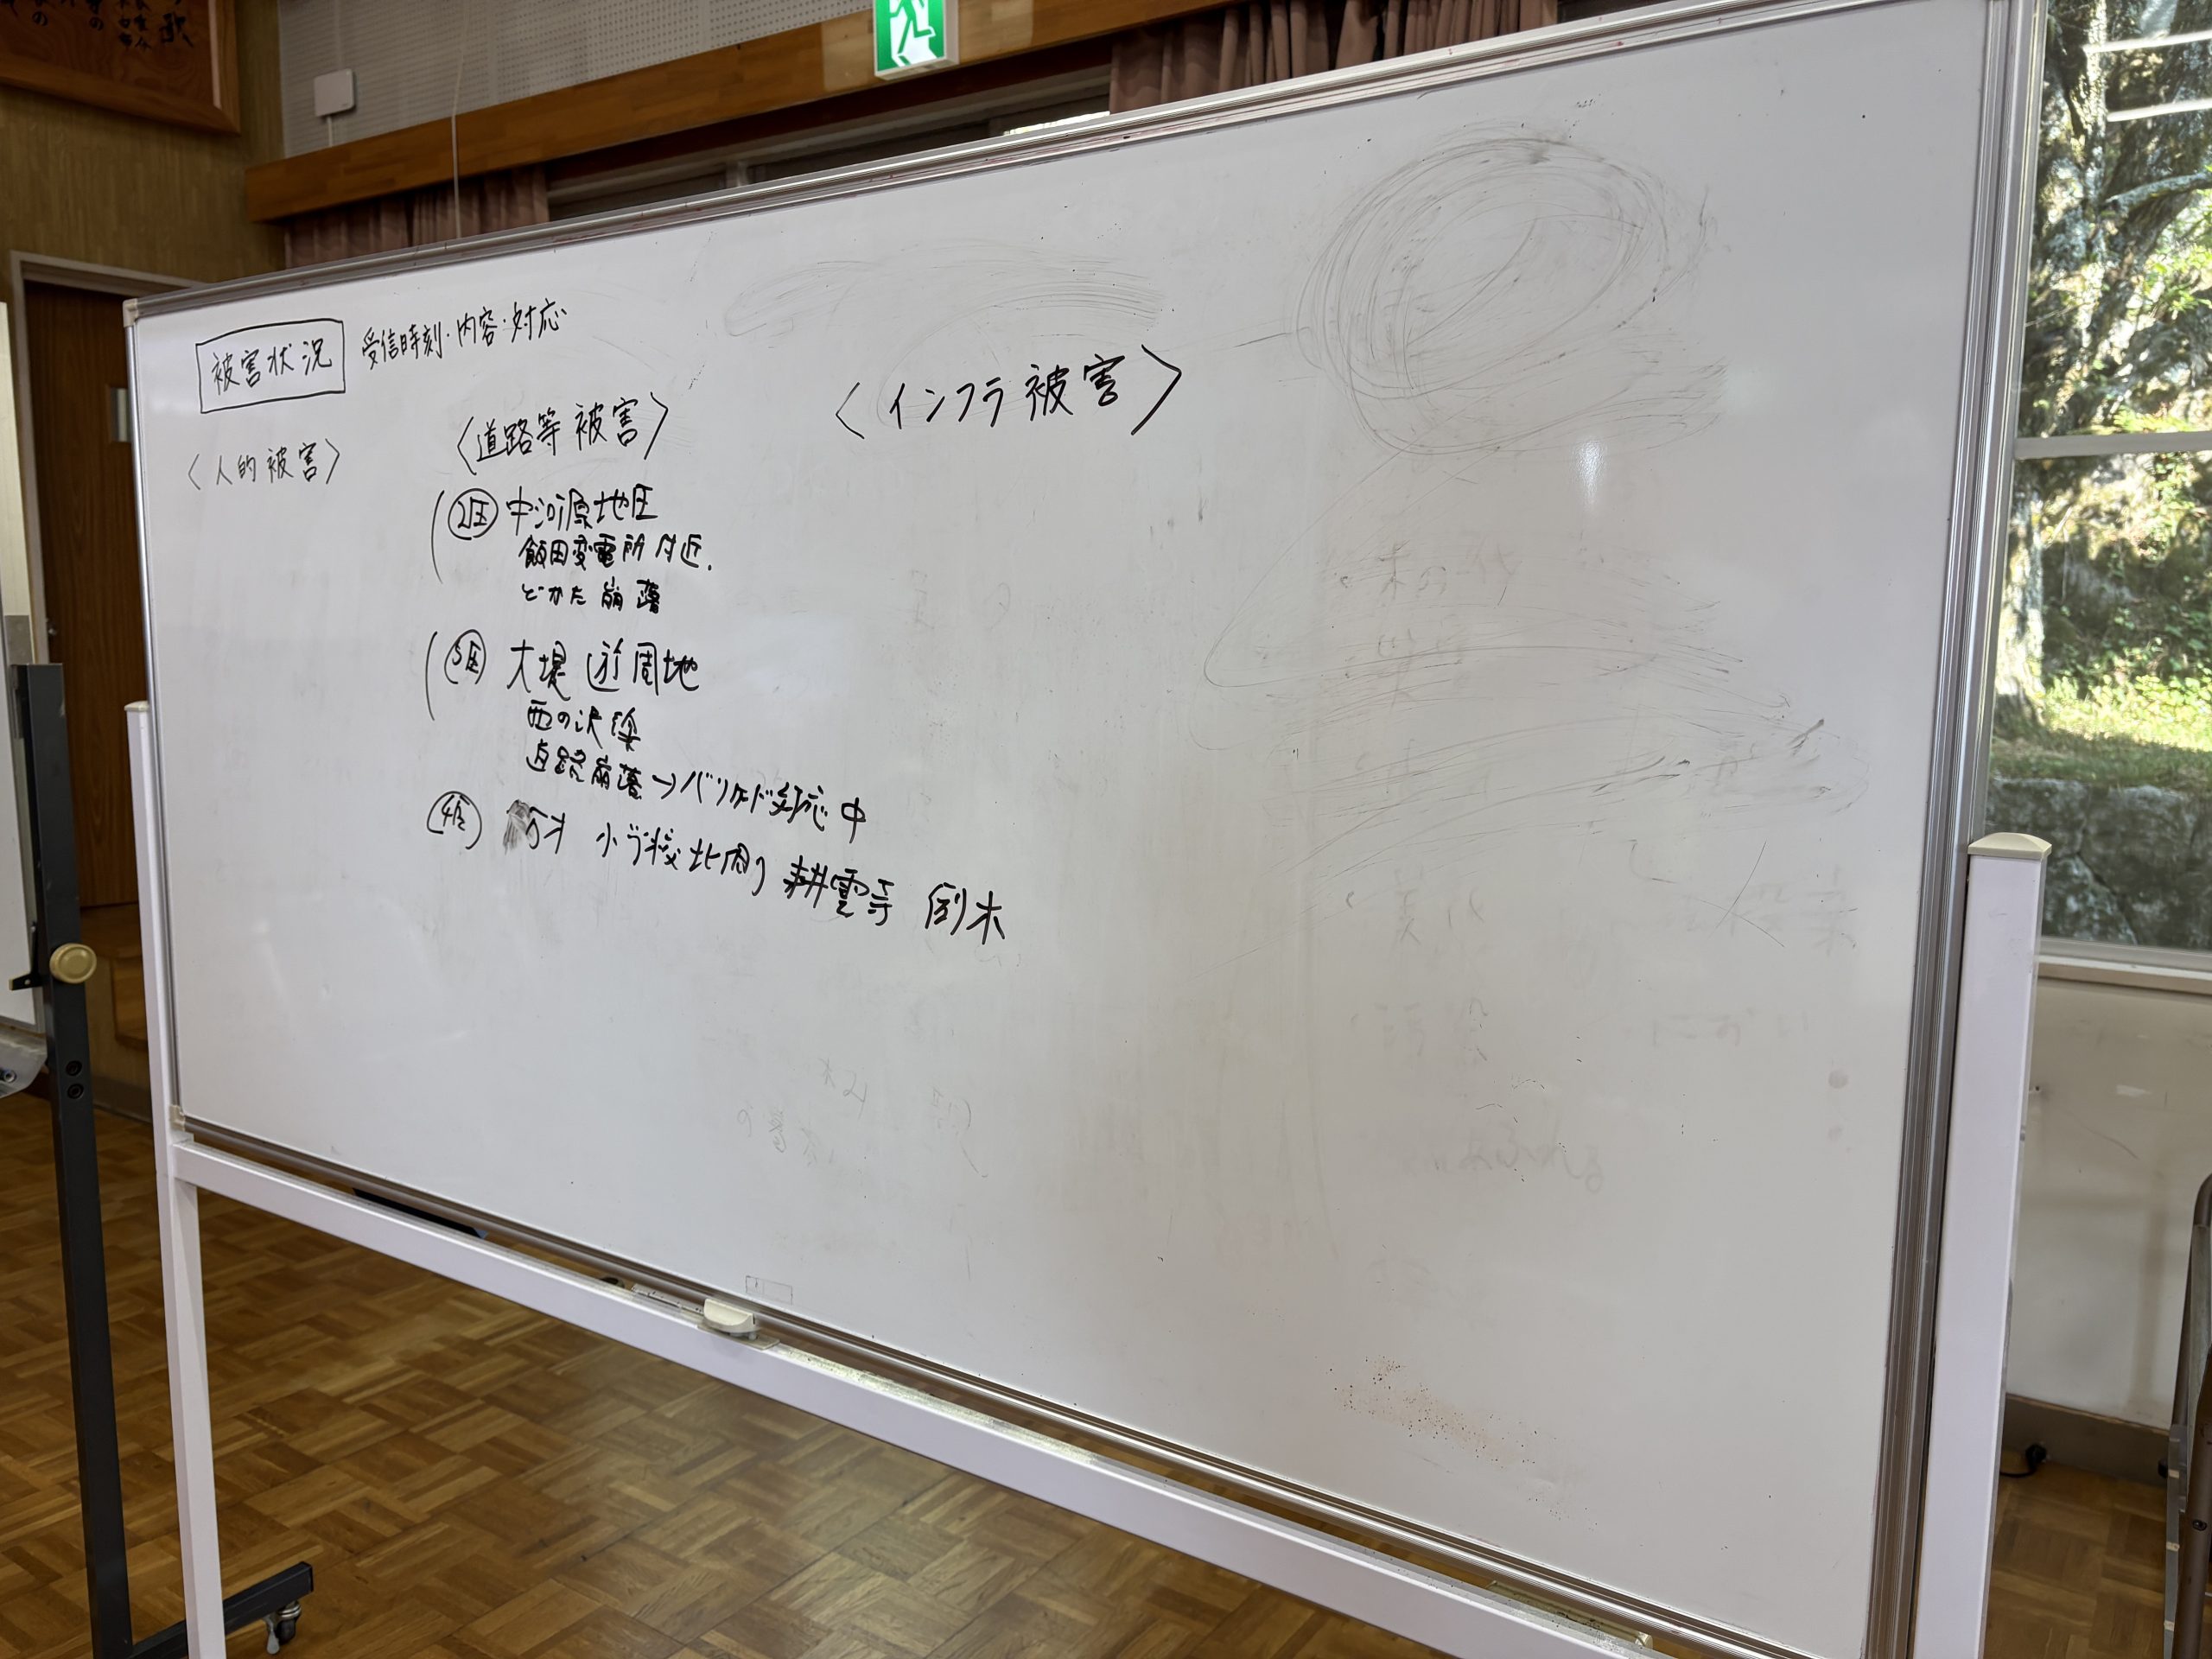 被害状況 受信時刻・内容・対応
〈人的被害〉
〈道路等被害〉
2区 中河原地区
飯田変電所付近.
どかた崩落
5区 大堤 近周地
西の沢線
道路崩落→バリケード対応中
4区 小学校北周り 耕雲寺 倒木
〈インフラ被害〉